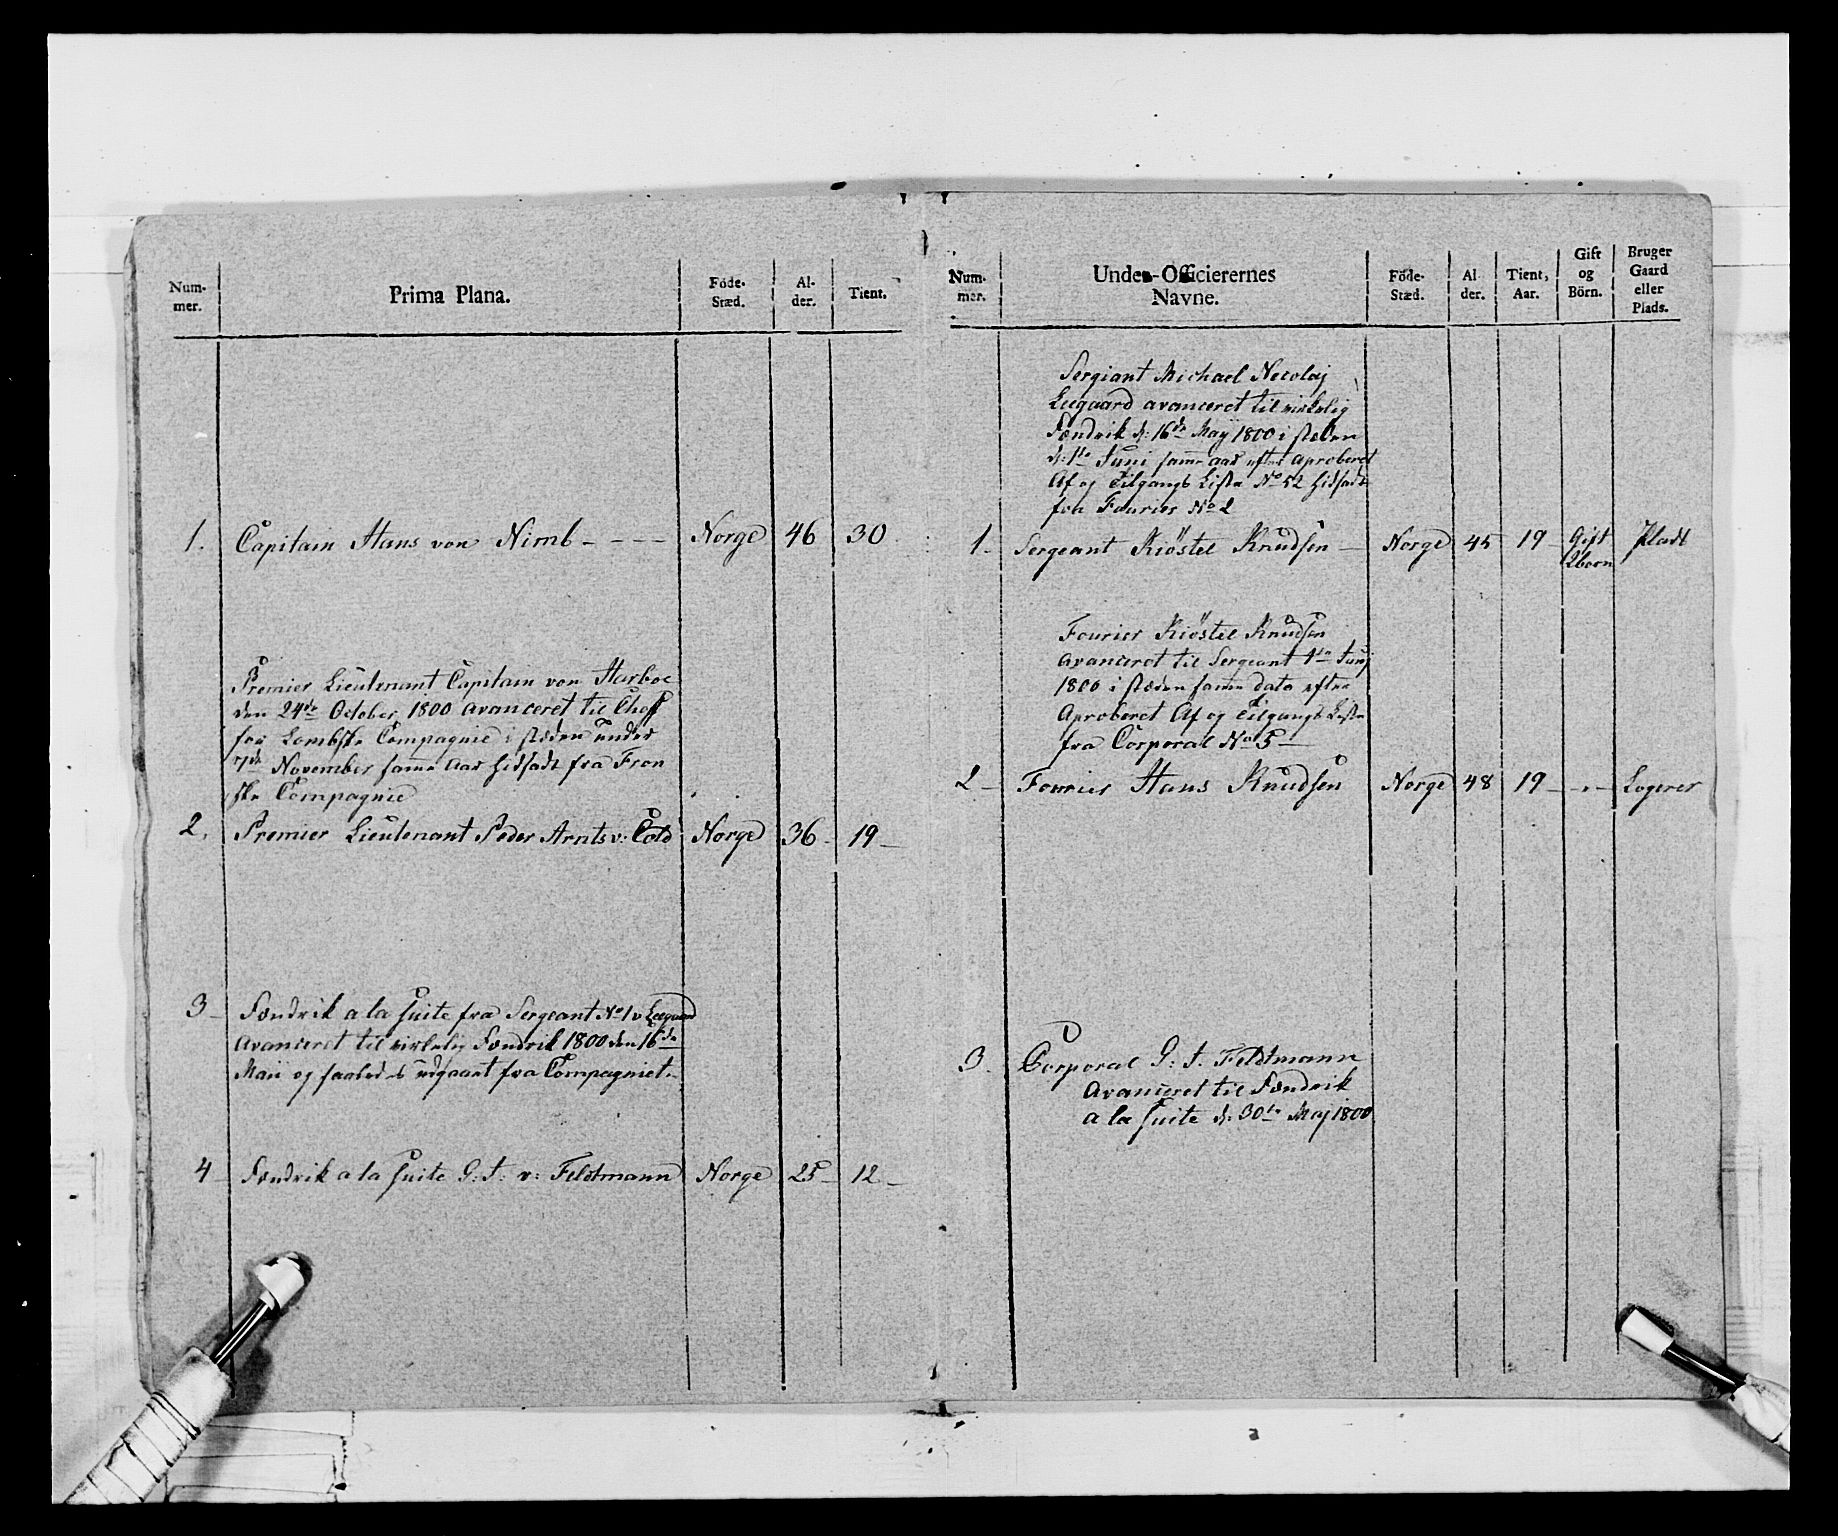 Num-
mer.
Prima Plana.
Föde-
Stæd.
Al-
der.
Tient.
1. Capitain Hans von Nimb - - - - Norge 46 30
Premier Lieutenant Capitain von Harboe
den 24de October 1800 avanceret til Cheff
for Lombske Compagnie i stæden under
7de November samme Aar hidsadt fra Fron
ske Compagnie
2. Premier Lieutenant Peder Arnts v: Cold Norge 36 - 19 -
3 - Fændrik a la suite fra Sergeant No 1 v Leegaard
Avanceret til virkelig Fændrik 1800 den 16de
Maii og saaledes udgaaet fra Compagniet.
4 - Fændrik a la suite G: F. v: Feldtmann Norge 25 - 12 -
Num-
mer.
Under-Officierernes
Navne.
Föde-
Stæd.
Al
der.
Tient,
Aar.
Gift
og
Börn.
Bruger
Gaard
eller
Plads.
Sergiant Michael Necolaj
Leegaard avanceret til virkelig
Fændrik d: 16de Maij 1800 i stæden
d: 1te Juni samme aar efter aproberet
Af og Tilgangs Liste No 52 hidsadt
fra Fourier No 2
1. Sergeant Kiøstel Knudsen - Norge 45 19 - Gift Plads
2 born
Fourier Kiøstel Knudsen
avanceret til Sergeant 1te Junj
1800 i stæden samme dato efter
Aproberet Af og Tilgangs Liste
fra Corporal No 5 -
2 - Fourier Hans Knudsen Norge 48 19 - - " - Logerer
3. Corporal G: F. Feldtmann
Avanceret til Fændrik
a la suite d: 30te Maj 1800